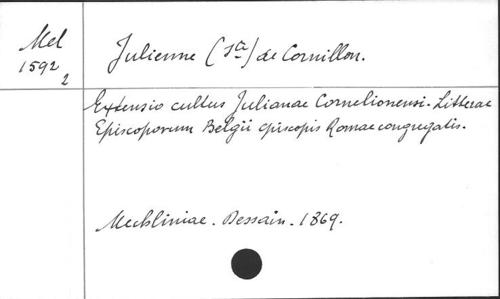 Mel
1592
2
Julienne (Sta) de Cornillon.
Extensio cultus Julianae Cornelionensi. Litterae
Episcoporum Belgii episcopis Romae congregatis.
Mechliniae. Dessain. 1869.